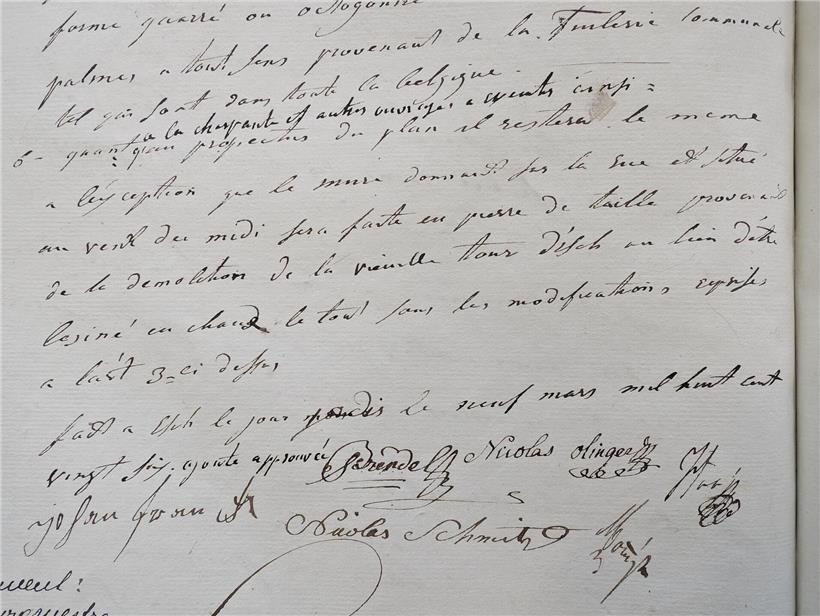 forme quarré ou octogonne
palmes a tout sens provenant de la Tuilerie Communale
tel qui sont dans toute la belgique.
a la charpante et autres ouvrages a ainsi =
6 - quant aux projectés du plan il restera le meme
a l'éxception que le mure donnant sur la rue et situé
au vent du midi sera faite en pierre de taille provenant
de la demolition de la vieille tour d'Esch au lieu d'étre
en chaux le tout sous les modifications reprises
a l'art 3 - ci dessus
fait a Esch le jour le neuf mars mil huit cent
vingt six. ajoute approuvée Schendel Nicolas olinger
Nicolas Schmit